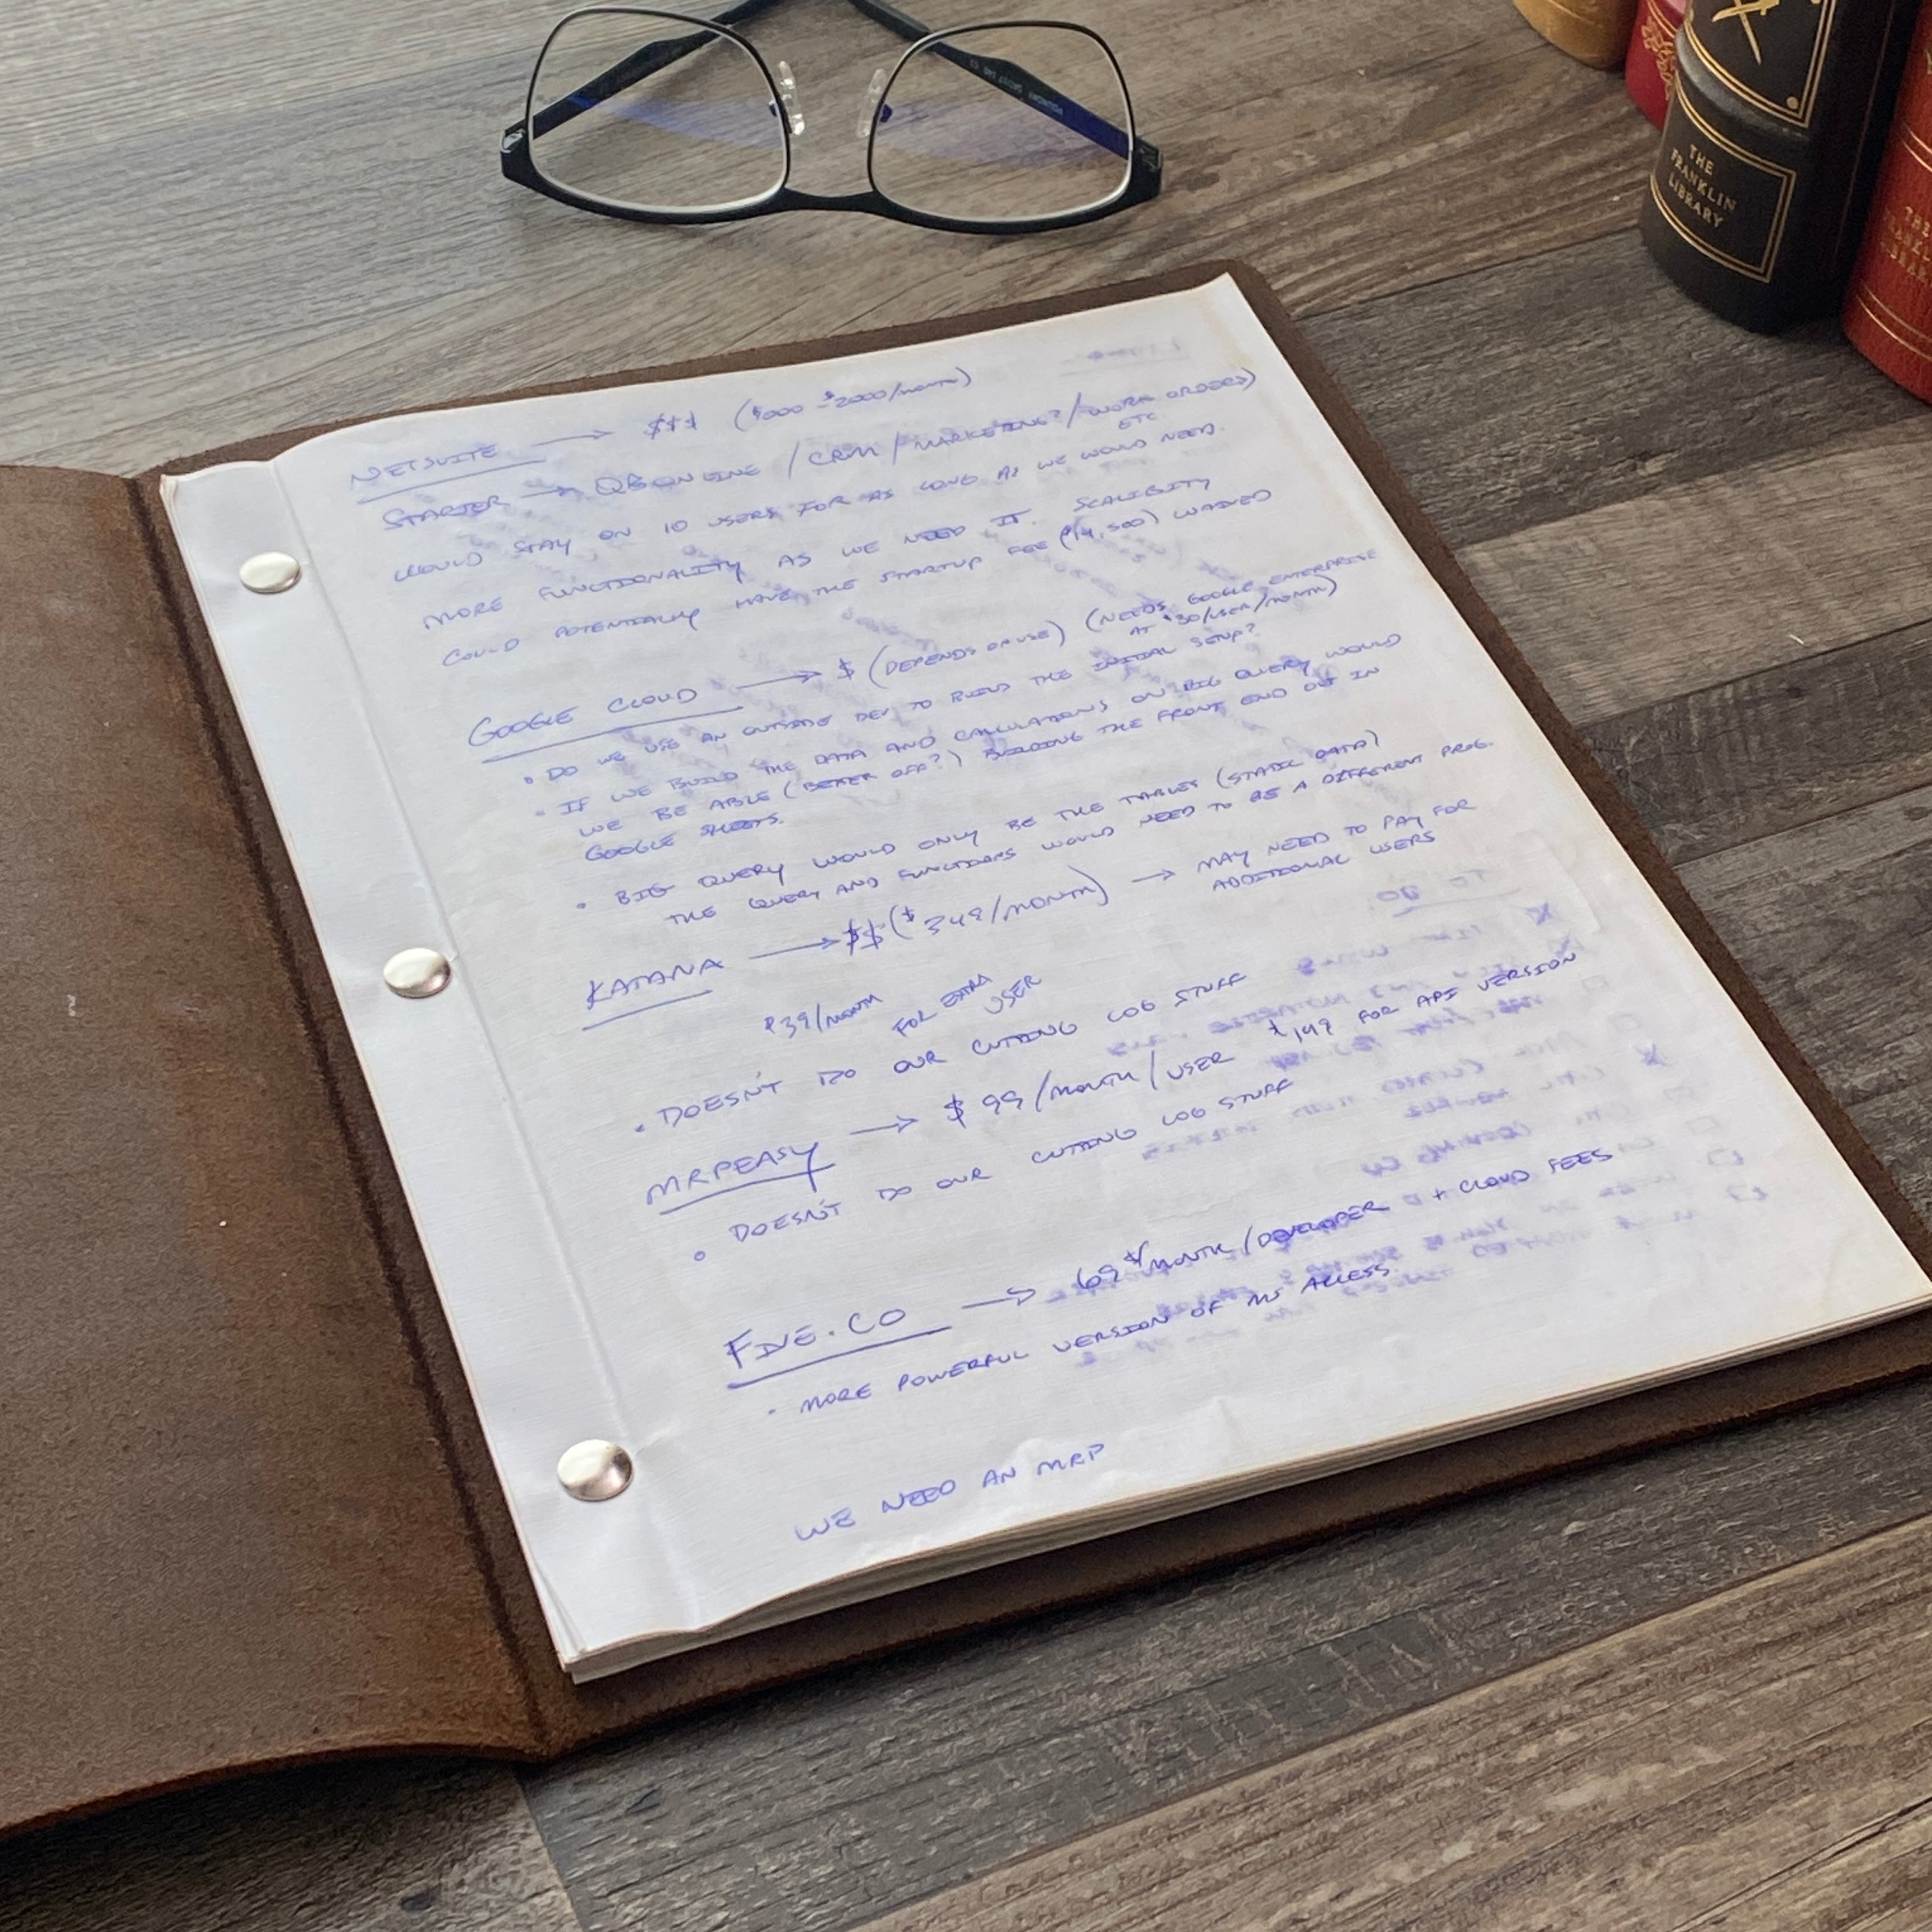 THE
FRANKLIN
LIBRARY
NETSUITE → $$$ ($000 - $2000/MONTH)
STARTER → QBONLINE / CRM / MARKETING? / WORK ORDERS)
ETC
WOULD STAY ON 10 USERS FOR AS LONG AS WE WOULD NEED.
MORE FUNCTIONALITY AS WE NEED IT. SCALIBITY
COULD POTENTIALLY HAVE THE STARTUP FEE ($14,500) WAIVED
GOOGLE CLOUD → $ (DEPENDS ON USE) (NEEDS GOOGLE ENTERPRISE
AT $30/USER/MONTH)
• DO WE USE AN OUTSIDE DEV TO BUILD THE INITIAL SETUP?
• IF WE BUILD THE DATA AND CALCULATIONS ON BIG QUERY WOULD
WE BE ABLE (BETTER OFF?) BUILDING THE FRONT END OUT IN
GOOGLE SHEETS.
• BIG QUERY WOULD ONLY BE THE TABLES (STATIC DATA)
THE QUERY AND FUNCTIONS WOULD NEED TO BE A DIFFERENT PROG.
KATANA → $$ ($349/MONTH) → MAY NEED TO PAY FOR
ADDITIONAL USERS
$39/MONTH
FOR EXTRA
USER
• DOESN'T DO OUR CUTTING LOG STUFF
MRPEASY → $99/MONTH/USER $149 FOR API VERSION
• DOESN'T DO OUR CUTTING LOG STUFF
FIVE.CO → 69$/MONTH/DEVELOPER + CLOUD FEES
• MORE POWERFUL VERSION OF MS ACCESS.
WE NEED AN MRP